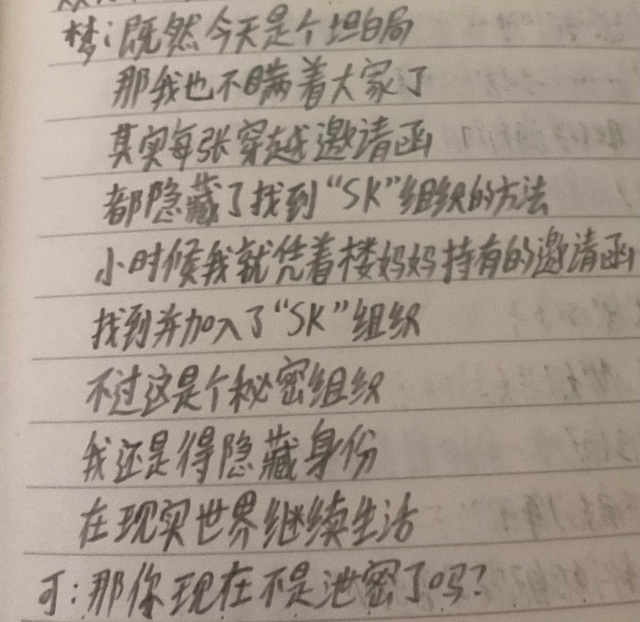 梦:既然今天是个坦白局
那我也不瞒着大家了
其实每张穿越邀请函
都隐藏了找到“SK”组织的方法
小时候我就凭着楼妈妈持有的邀请函
找到并加入了“SK”组织
不过这是个秘密组织
我还是得隐藏身份
在现实世界继续生活
可:那你现在不是泄密了吗?